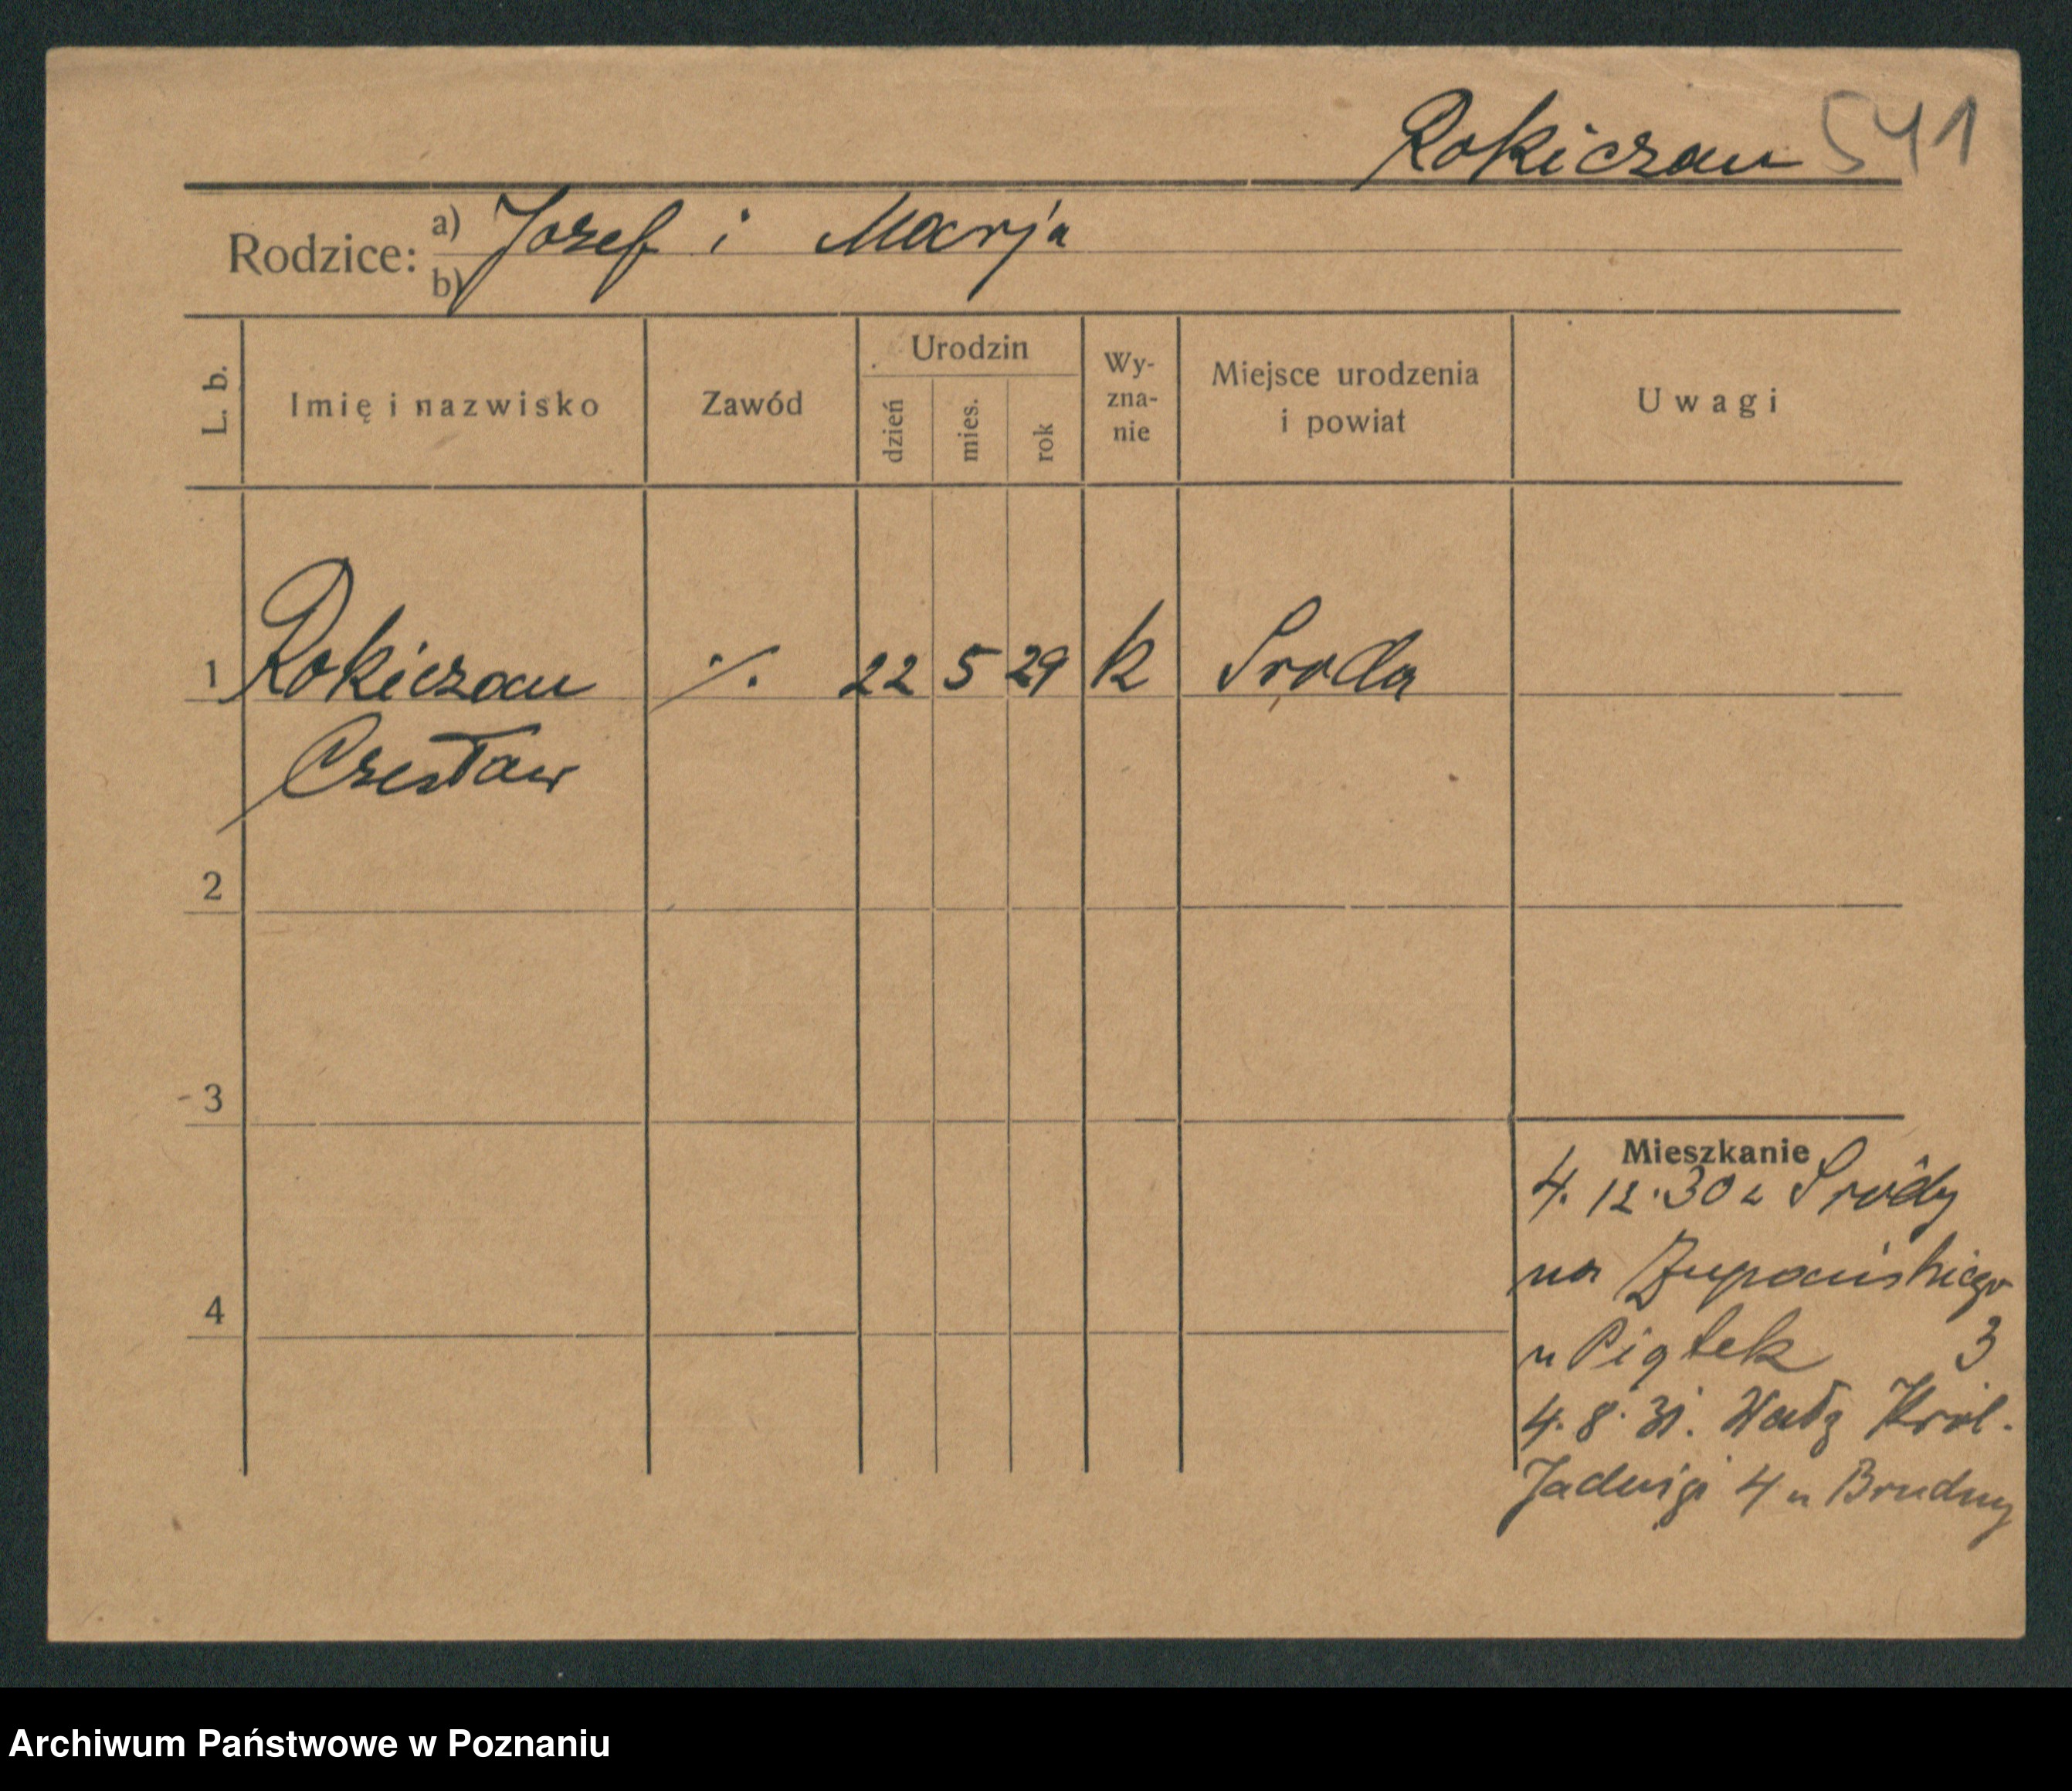 Rokiczan 541
Rodzice: a) Jozef i Marja
b)
L. b.
Imię i nazwisko
Zawód
Urodzin
dzień
mies.
rok
Wy-
zna-
nie
Miejsce urodzenia
i powiat
Uwagi
1 Rokiczan ./. 22 5 29 k Sroda
Czesław
2
3
Mieszkanie
4. 12. 30 z Środy
na Żupańskiego
u Piątek 3
4
4. 8. 31. Wały Król.
Jadwigi 4 u Brudny
Archiwum Państwowe w Poznaniu